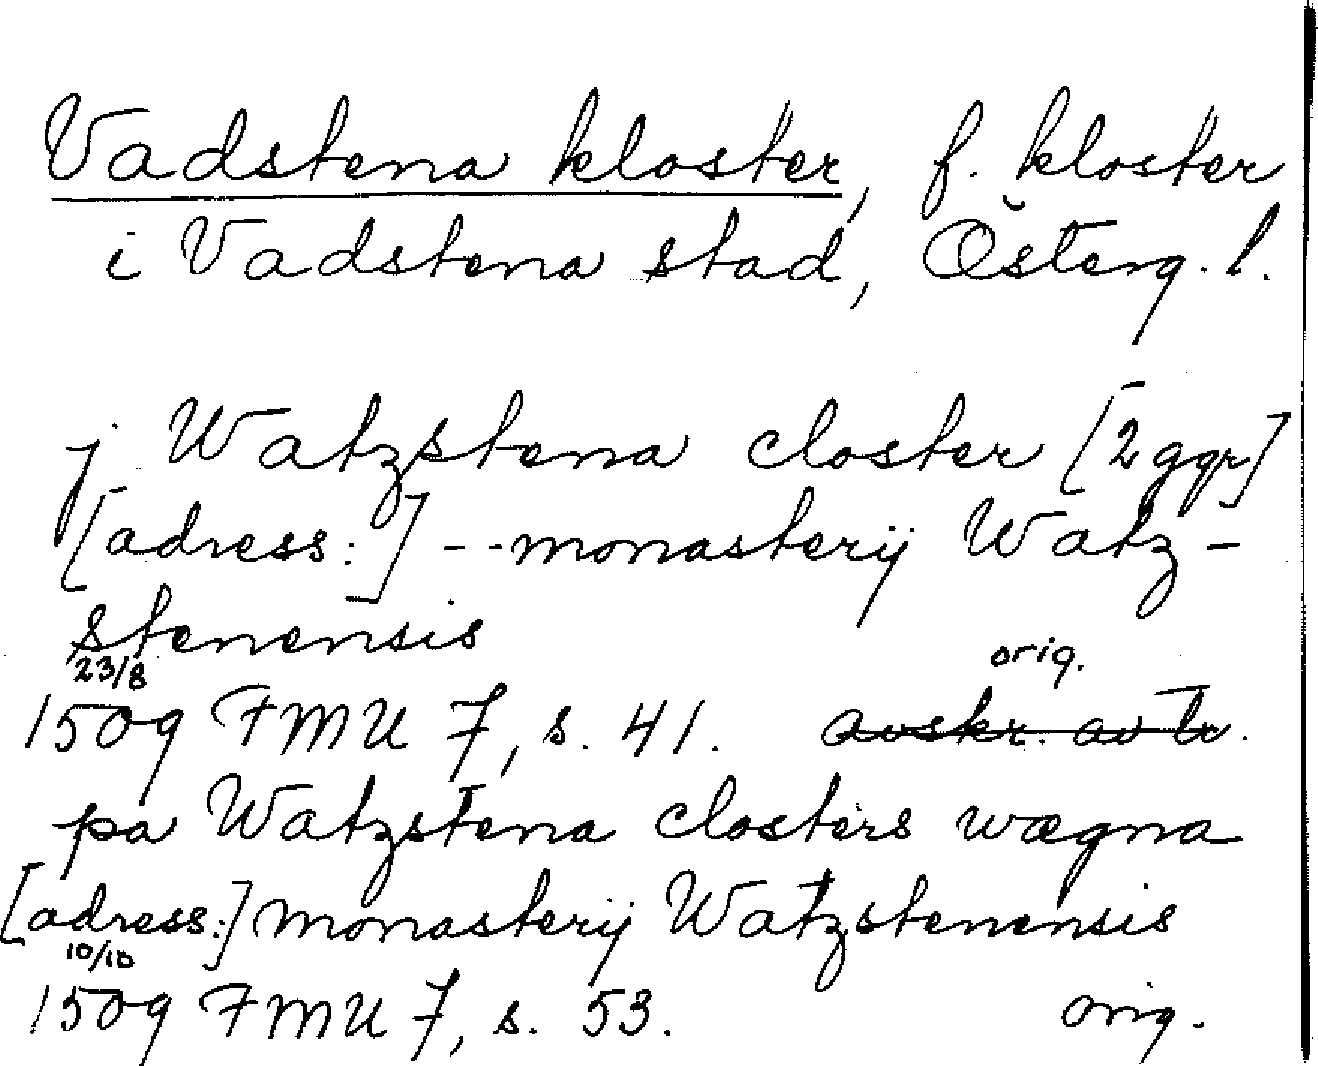 Vadstena kloster, f. kloster
i Vadstena stad, Österg. l.
j Watzstena closter [2 ggr]
[adress:] - - monasterij Watz-
stenensis
23/8 orig.
1509 FMU 7, s. 41. avskr. av tr.
pa Watzstena closters wægna
[adress:] monasterij Watzstenensis
10/10
1509 FMU 7, s. 53. orig.